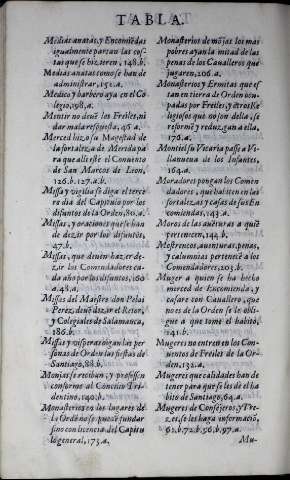 TABLA.
Medias anatas, y Encomiẽdas
igualmente partan las cos-
tas que se hizieren, 148.b.
Medias anatas como se han de
administrar, 151.a.
Medico y barbero aya en el Co
legio, 198.a.
Mentir no deuẽ los Freiles, ni
dar mala respuesta, 46.a.
Merced hizo su Magestad de
la fortaleza de Merida pa
ra que alli estè el Conuento
de San Marcos de Leon,
126.b. 127.a.b.
Missa y vigilia se diga el terce
ro dia del Capitulo por los
difuntos de la Orden, 80.a.
Missas, y oraciones que se han
de dezir por los difuntos,
47.b.
Missas, que deuen hazer de-
zir los Comendadores ca-
da año por los difuntos, 160
a. 48.a.
Missas del Maestro don Pelai
Perez, deuẽ dezir el Retor,
y Colegiales de Salamanca,
186.b.
Missas y visperas oigan las per
sonas de Orden las fiestas de
Santiago, 88.b.
Monjas se reciban, y professen
conforme al Concilio Tri-
dentino, 140.b.
Monasterios en los lugares de
la Ordẽ no se puedẽ fundar
sino con licencia del Capitu
lo general, 173.a.
Monasterios de mõjas los mas
pobres ayan la mitad de las
penas de los Caualleros que
jugaren, 206.a.
Monasterios y Ermitas que es
tan en tierra de Orden ocu-
padas por Freiles, y otros Re
ligiosos que no son della, se
reformẽ y reduzgan a ella,
170.a.
Montiel su Vicaria passe a Vi-
llanueua de los Infantes,
164.a.
Moradores pongan los Comen
dadores, que habiten en las
fortalezas, y casas de sus En
comiendas, 143.a.
Moros de las auenturas a quiẽ
pertenecen, 144.b.
Mostrencos, auenturas, penas,
y calumnias pertenecẽ a los
Comendadores, 205.b.
Muger a quien se ha hecho
merced de Encomienda, y
casare con Cauallero, que
no es de la Orden se le obli-
gue a que tome el habito,
141.b.
Mugeres no entren en los Con
uentos de Freiles de la Or-
den, 132.a.
Mugeres que calidades han de
tener para que se les dè el ha
bito de Santiago, 64.a.
Mugeres de Consejeros, y Tre-
zes, se les haga informaciõ,
62.b. 72.b. 56.b. 97.a.
Mu-